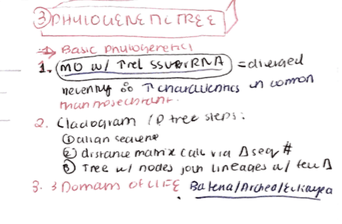 ③ PHYLOGENETIC TREE
→ Basic phylogenetics
1. MO w/ ↑rel SSUrRNA = diverged
recently so ↑ characteristics in common
than most recent.
2. Cladogram / P tree steps:
① align sequence
② distance matrix calc via Δ seq #
③ Tree w/ nodes join lineages w/ few Δ
3. 3 Domain of LIFE. Bacteria/Archea/Eukarya